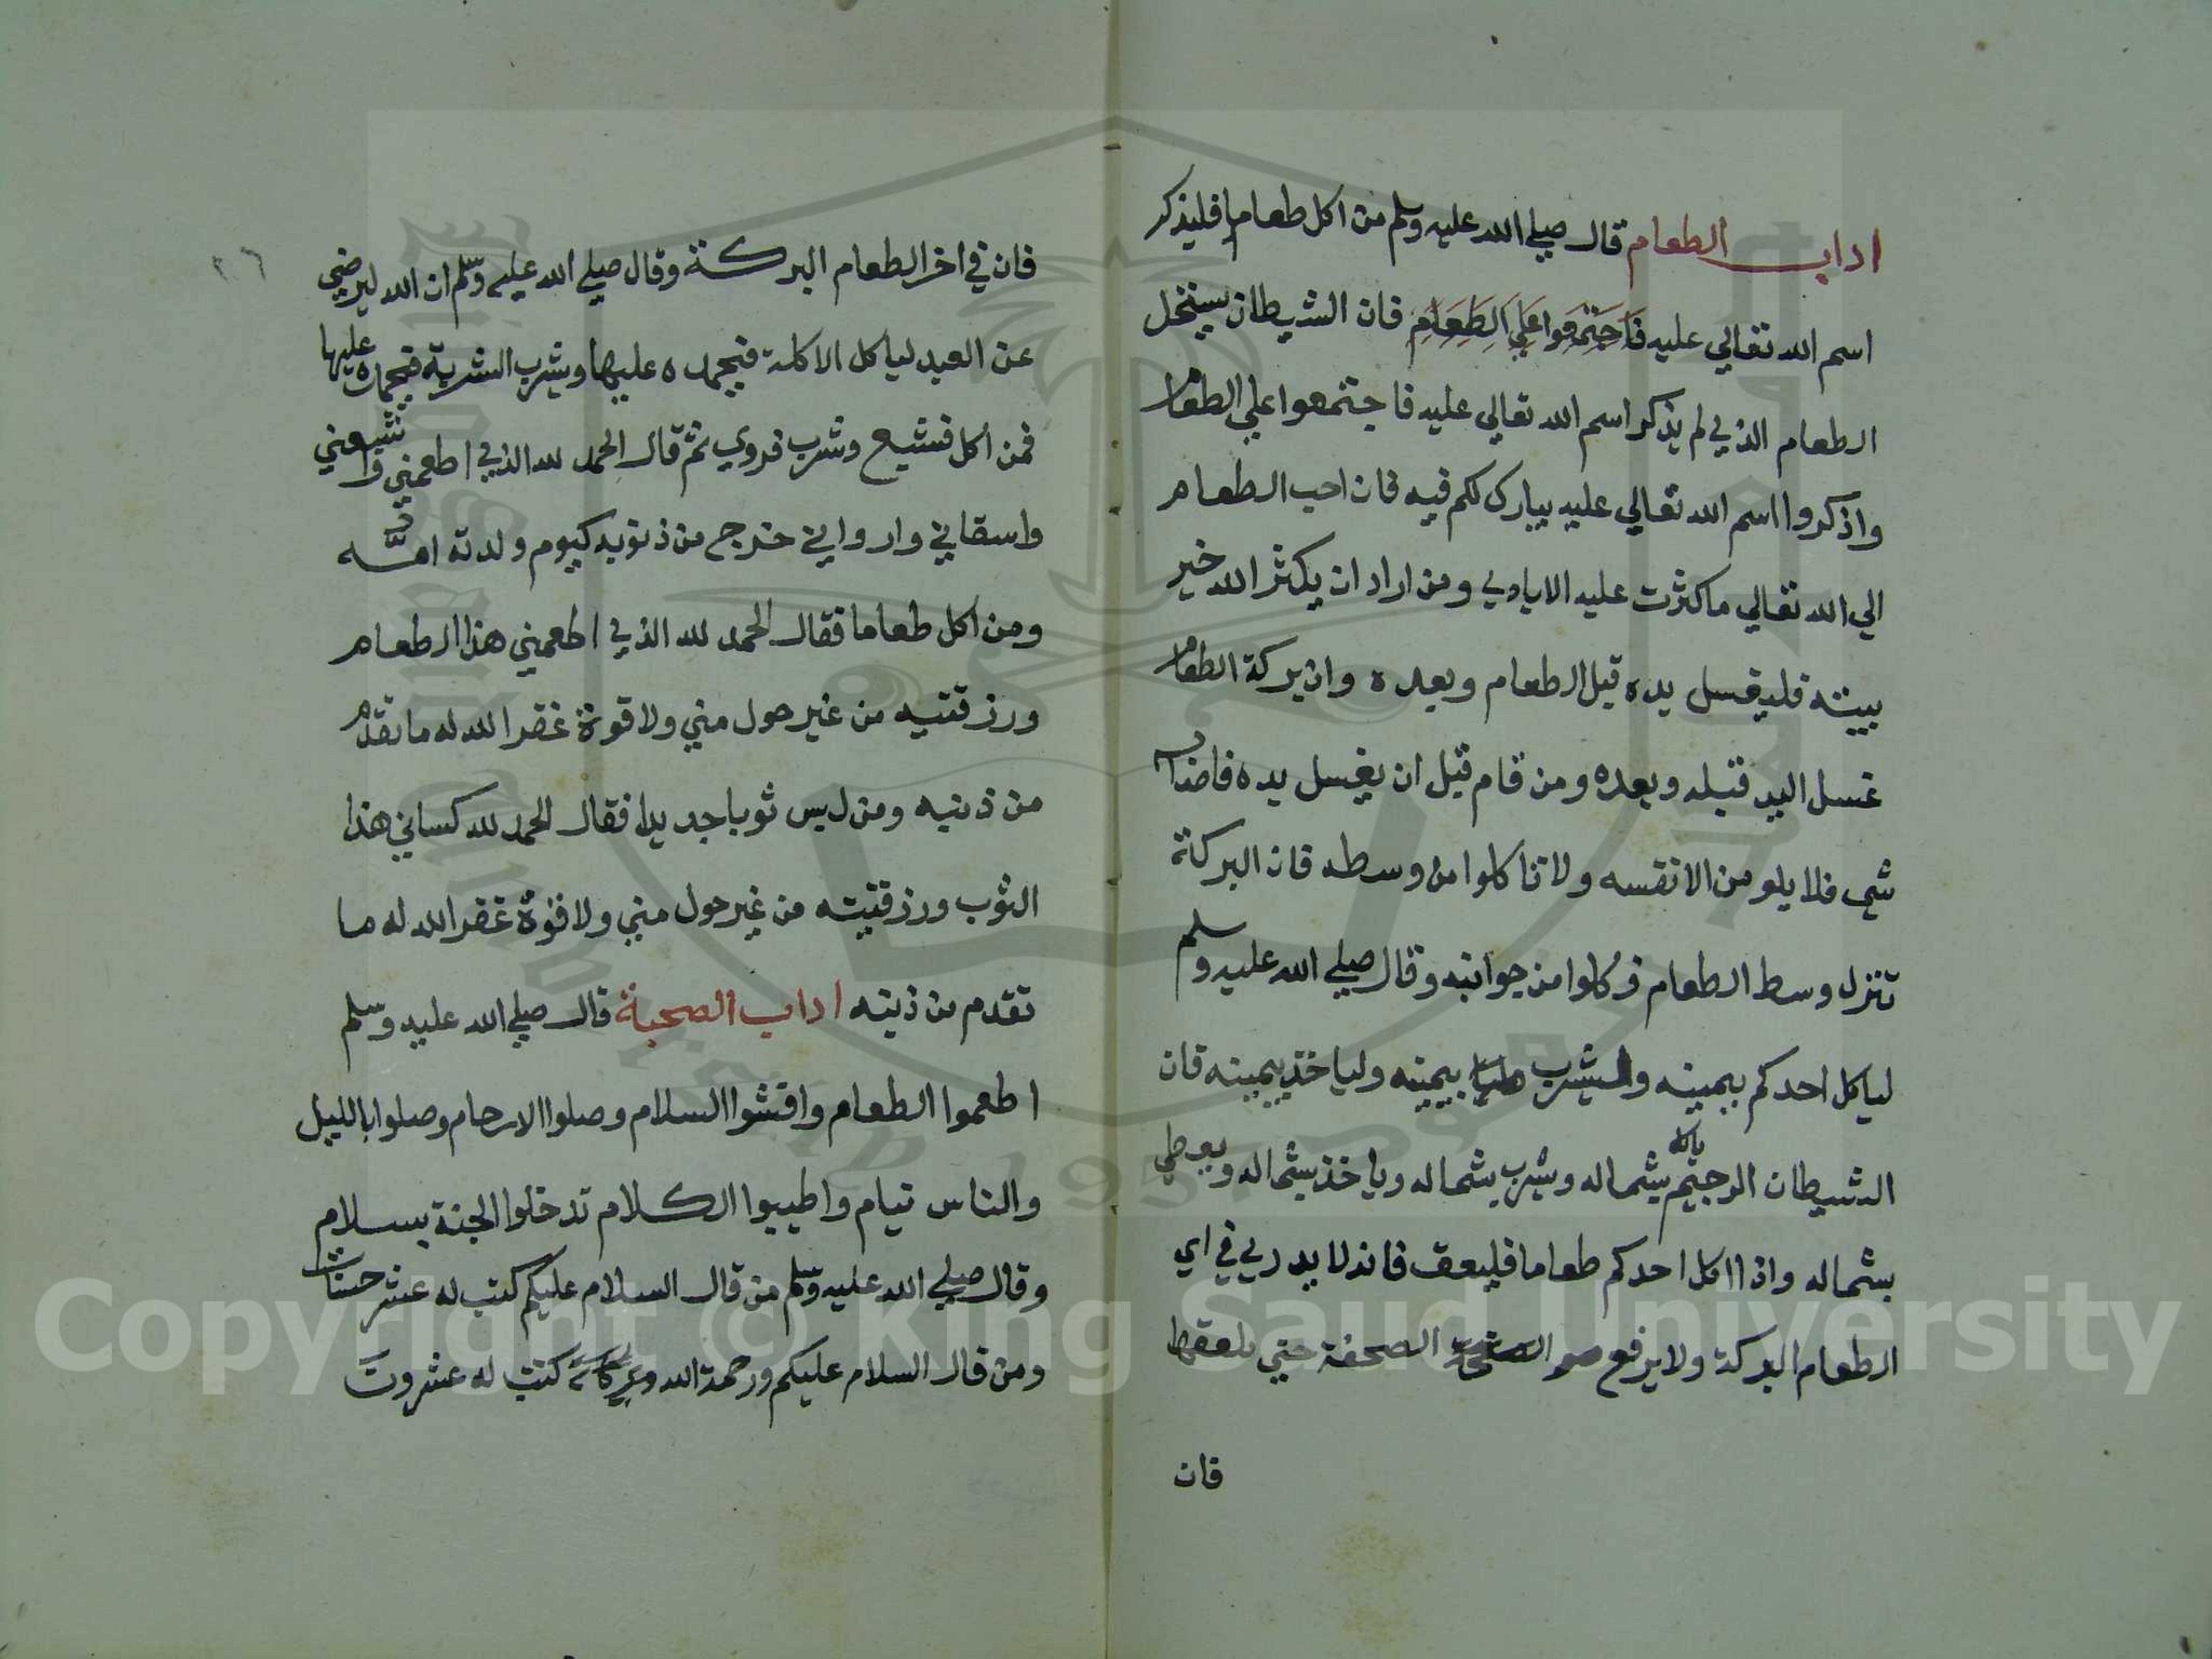 اداب الطعام قال صلي الله عليه وسلم من اكل طعاما فليذكر
اسم الله تعالي عليه فاجتمعوا علي الطعام فان الشيطان يستحل
الطعام الذي لم يذكر اسم الله تعالي عليه فاجتمعوا علي الطعام
واذكروا اسم الله تعالي عليه يبارك لكم فيه فان احب الطعام
الي الله تعالي ما كثرت عليه الايادي ومن اراد ان يكثر الله خير
بيته فليغسل يده قبل الطعام وبعده وان بركة الطعام
غسل اليد قبله وبعده ومن قام قبل ان يغسل يده فاصابه
شي فلا يلومن الا نفسه ولا تاكلوا من وسطه فان البركة
تنزل وسط الطعام فكلوا من جوانبه وقال صلي الله عليه وسلم
لياكل احدكم بيمينه وليشرب بيمينه ولياخذ بيمينه فان
الشيطان الرجيم ياكل بشماله ويشرب بشماله وياخذ بشماله ويعطي
بشماله واذا اكل احدكم طعاما فليعق فانه لا يدري في اي
الطعام البركة ولا يرفع الصحفة حتي يلعقها
فان
٢٦
فان في اخر الطعام البركة وقال صلي الله عليه وسلم ان الله ليرضي
عن العبد لياكل الاكلة فيحمده عليها ويشرب الشربة فيحمده عليها
فمن اكل فشبع وشرب فروي ثم قال الحمد لله الذي اطعمني واشبعني
واسقاني وارواني خرج من ذنوبه كيوم ولدته امه
ومن اكل طعاما فقال الحمد لله الذي اطعمني هذا الطعام
ورزقنيه من غير حول مني ولا قوة غفر الله له ما تقدم
من ذنبه ومن لبس ثوبا جديدا فقال الحمد لله كساني هذا
الثوب ورزقنيه من غير حول مني ولا قوة غفر الله له ما
تقدم من ذنبه اداب الصحبة قال صلي الله عليه وسلم
اطعموا الطعام وافشوا السلام وصلوا الارحام وصلوا بالليل
والناس نيام واطيبوا الكلام تدخلوا الجنة بسلام
وقال صلي الله عليه وسلم من قال السلام عليكم كتب له عشر حسنات
ومن قال السلام عليكم ورحمة الله وبركاته كتب له عشرون
Copyright © King Saud University
1957